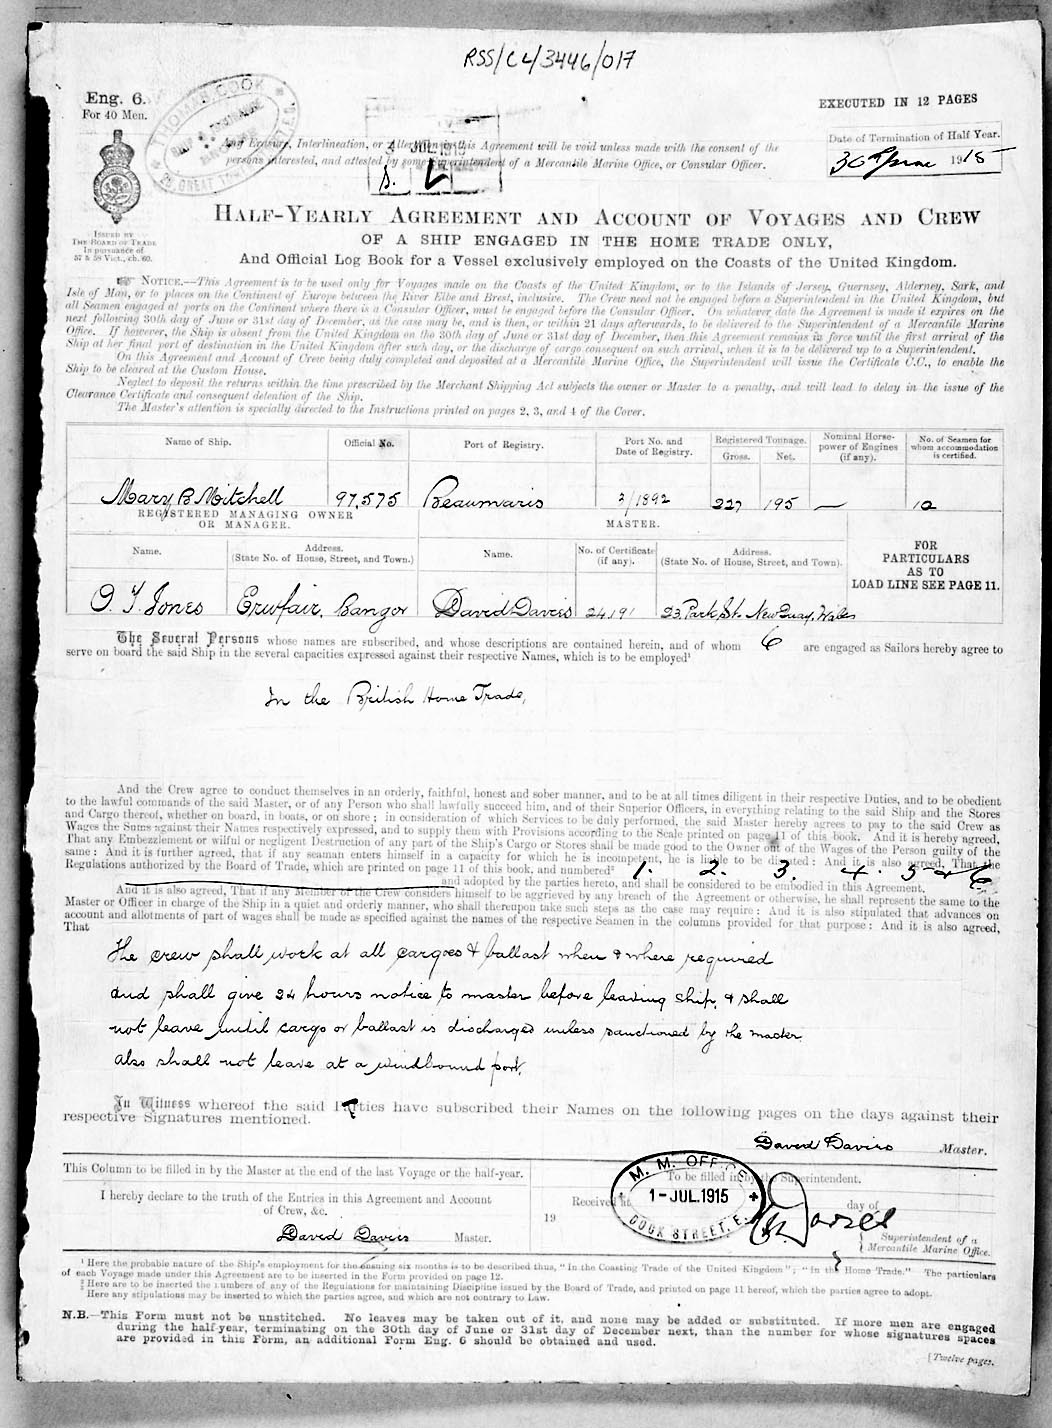 RSS/CL/3446/017
Eng. 6.
For 40 Men.
THOMAS COOK
EXECUTED IN 12 PAGES
Any Erasure, Interlineation, or Alteration in this Agreement will be void unless made with the consent of the
persons interested, and attested by some Superintendent of a Mercantile Marine Office, or Consular Officer.
JUL 1915
Date of Termination of Half Year.
30th June 1915
ISSUED BY
THE BOARD OF TRADE
In pursuance of
57 & 58 Vict., ch. 60.
HALF-YEARLY AGREEMENT AND ACCOUNT OF VOYAGES AND CREW
OF A SHIP ENGAGED IN THE HOME TRADE ONLY,
And Official Log Book for a Vessel exclusively employed on the Coasts of the United Kingdom.
NOTICE.—This Agreement is to be used only for Voyages made on the Coasts of the United Kingdom, or to the Islands of Jersey, Guernsey, Alderney, Sark, and
Isle of Man, or to places on the Continent of Europe between the River Elbe and Brest, inclusive. The Crew need not be engaged before a Superintendent in the United Kingdom, but
all Seamen engaged at ports on the Continent where there is a Consular Officer, must be engaged before the Consular Officer. On whatever date the Agreement is made it expires on the
next following 30th day of June or 31st day of December, as the case may be, and is then, or within 21 days afterwards, to be delivered to the Superintendent of a Mercantile Marine
Office. If however, the Ship is absent from the United Kingdom on the 30th day of June or 31st day of December, then this Agreement remains in force until the first arrival of the
Ship at her final port of destination in the United Kingdom after such day, or the discharge of cargo consequent on such arrival, when it is to be delivered up to a Superintendent.
On this Agreement and Account of Crew being duly completed and deposited at a Mercantile Marine Office, the Superintendent will issue the Certificate C.C., to enable the
Ship to be cleared at the Custom House.
Neglect to deposit the returns within the time prescribed by the Merchant Shipping Act subjects the owner or Master to a penalty, and will lead to delay in the issue of the
Clearance Certificate and consequent detention of the Ship.
The Master's attention is specially directed to the Instructions printed on pages 2, 3, and 4 of the Cover.
Name of Ship. Official No. Port of Registry. Port No. and Date of Registry. Registered Tonnage. Gross. Net. Nominal Horse-power of Engines (if any). No. of Seamen for whom accommodation is certified.
Mary B Mitchell 97,575 Beaumaris 3/1892 227 195 — 10
REGISTERED MANAGING OWNER
OR MANAGER.
MASTER.
Name. Address. (State No. of House, Street, and Town.) Name. No. of Certificate (if any). Address. (State No. of House, Street, and Town).
FOR
PARTICULARS
AS TO
LOAD LINE SEE PAGE 11.
O. T. Jones Erwfair, Bangor David Davies 24191 23, Park St. New Quay, Wales
The Several Persons whose names are subscribed, and whose descriptions are contained herein, and of whom 6 are engaged as Sailors hereby agree to
serve on board the said Ship in the several capacities expressed against their respective Names, which is to be employed¹
In the British Home Trade,
And the Crew agree to conduct themselves in an orderly, faithful, honest and sober manner, and to be at all times diligent in their respective Duties, and to be obedient
to the lawful commands of the said Master, or of any Person who shall lawfully succeed him, and of their Superior Officers, in everything relating to the said Ship and the Stores
and Cargo thereof, whether on board, in boats, or on shore; in consideration of which Services to be duly performed, the said Master hereby agrees to pay to the said Crew as
Wages the Sums against their Names respectively expressed, and to supply them with Provisions according to the Scale printed on page 11 of this book. And it is hereby agreed,
That any Embezzlement or wilful or negligent Destruction of any part of the Ship's Cargo or Stores shall be made good to the Owner out of the Wages of the Person guilty of the
same: And it is further agreed, that if any seaman enters himself in a capacity for which he is incompetent, he is liable to be disrated: And it is also agreed, That the
Regulations authorized by the Board of Trade, which are printed on page 11 of this book, and numbered² 1. 2. 3. 4. 5 & 6
and adopted by the parties hereto, and shall be considered to be embodied in this Agreement.
And it is also agreed, That if any Member of the Crew considers himself to be aggrieved by any breach of the Agreement or otherwise, he shall represent the same to the
Master or Officer in charge of the Ship in a quiet and orderly manner, who shall thereupon take such steps as the case may require: And it is also stipulated that advances on
account and allotments of part of wages shall be made as specified against the names of the respective Seamen in the columns provided for that purpose: And it is also agreed,
That
The crew shall work at all cargoes & ballast when & where required
and shall give 24 hours notice to master before leaving ship, & shall
not leave until cargo or ballast is discharged unless sanctioned by the master
also shall not leave at a windbound port.
In Witness whereof the said Parties have subscribed their Names on the following pages on the days against their
respective Signatures mentioned.
David Davies Master.
This Column to be filled in by the Master at the end of the last Voyage or the half-year.
To be filled in by the Superintendent.
I hereby declare to the truth of the Entries in this Agreement and Account
of Crew, &c.
David Davies Master.
Received at
day of
19
M. M. OFFICE
1-JUL.1915
COOK STREET. E.
Superintendent of a
Mercantile Marine Office.
¹ Here the probable nature of the Ship's employment for the ensuing six months is to be described thus, "In the Coasting Trade of the United Kingdom"; "In the Home Trade." The particulars
of each Voyage made under this Agreement are to be inserted in the Form provided on page 12.
² Here are to be inserted the numbers of any of the Regulations for maintaining Discipline issued by the Board of Trade, and printed on page 11 hereof, which the parties agree to adopt.
Here any stipulations may be inserted to which the parties agree, and which are not contrary to Law.
N.B.—This Form must not be unstitched. No leaves may be taken out of it, and none may be added or substituted. If more men are engaged
during the half-year, terminating on the 30th day of June or 31st day of December next, than the number for whose signatures spaces
are provided in this Form, an additional Form Eng. 6 should be obtained and used.
[Twelve pages.